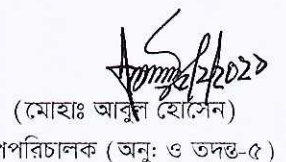 2/2/2020
(মোহাঃ আবুল হোসেন)
পপরিচালক (অনু: ও তদন্ত-৫)